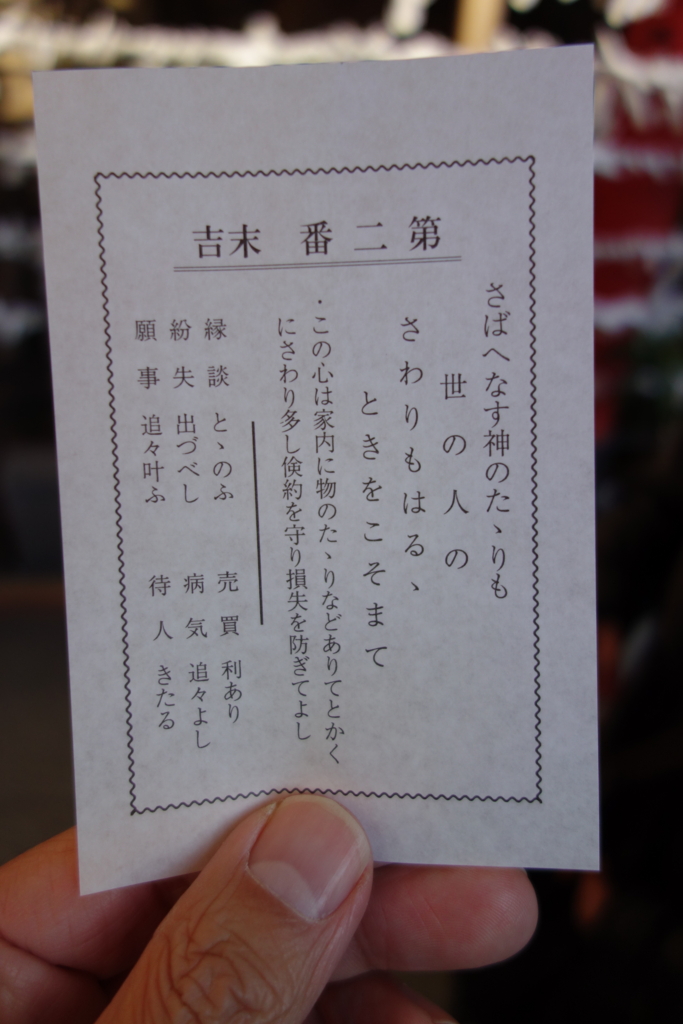 第二番 末吉
さばへなす神のたゝりも
世の人の
さわりもはるゝ
ときをこそまて
・この心は家内に物のたゝりなどありてとかく
にさわり多し倹約を守り損失を防ぎてよし
縁談 とゝのふ
紛失 出づべし
願事 追々叶ふ
売買 利あり
病気 追々よし
待人 きたる